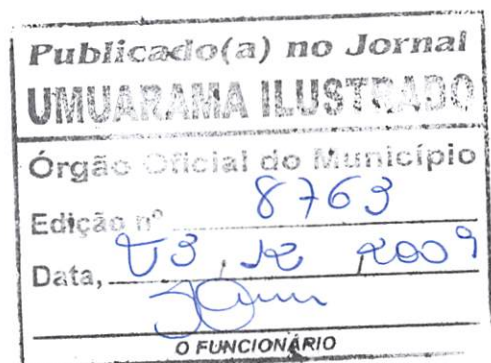 Publicado(a) no Jornal
UMUARAMA ILUSTRADO
Órgão Oficial do Município
Edição nº 8763
Data, 03, 12 2009
O FUNCIONÁRIO